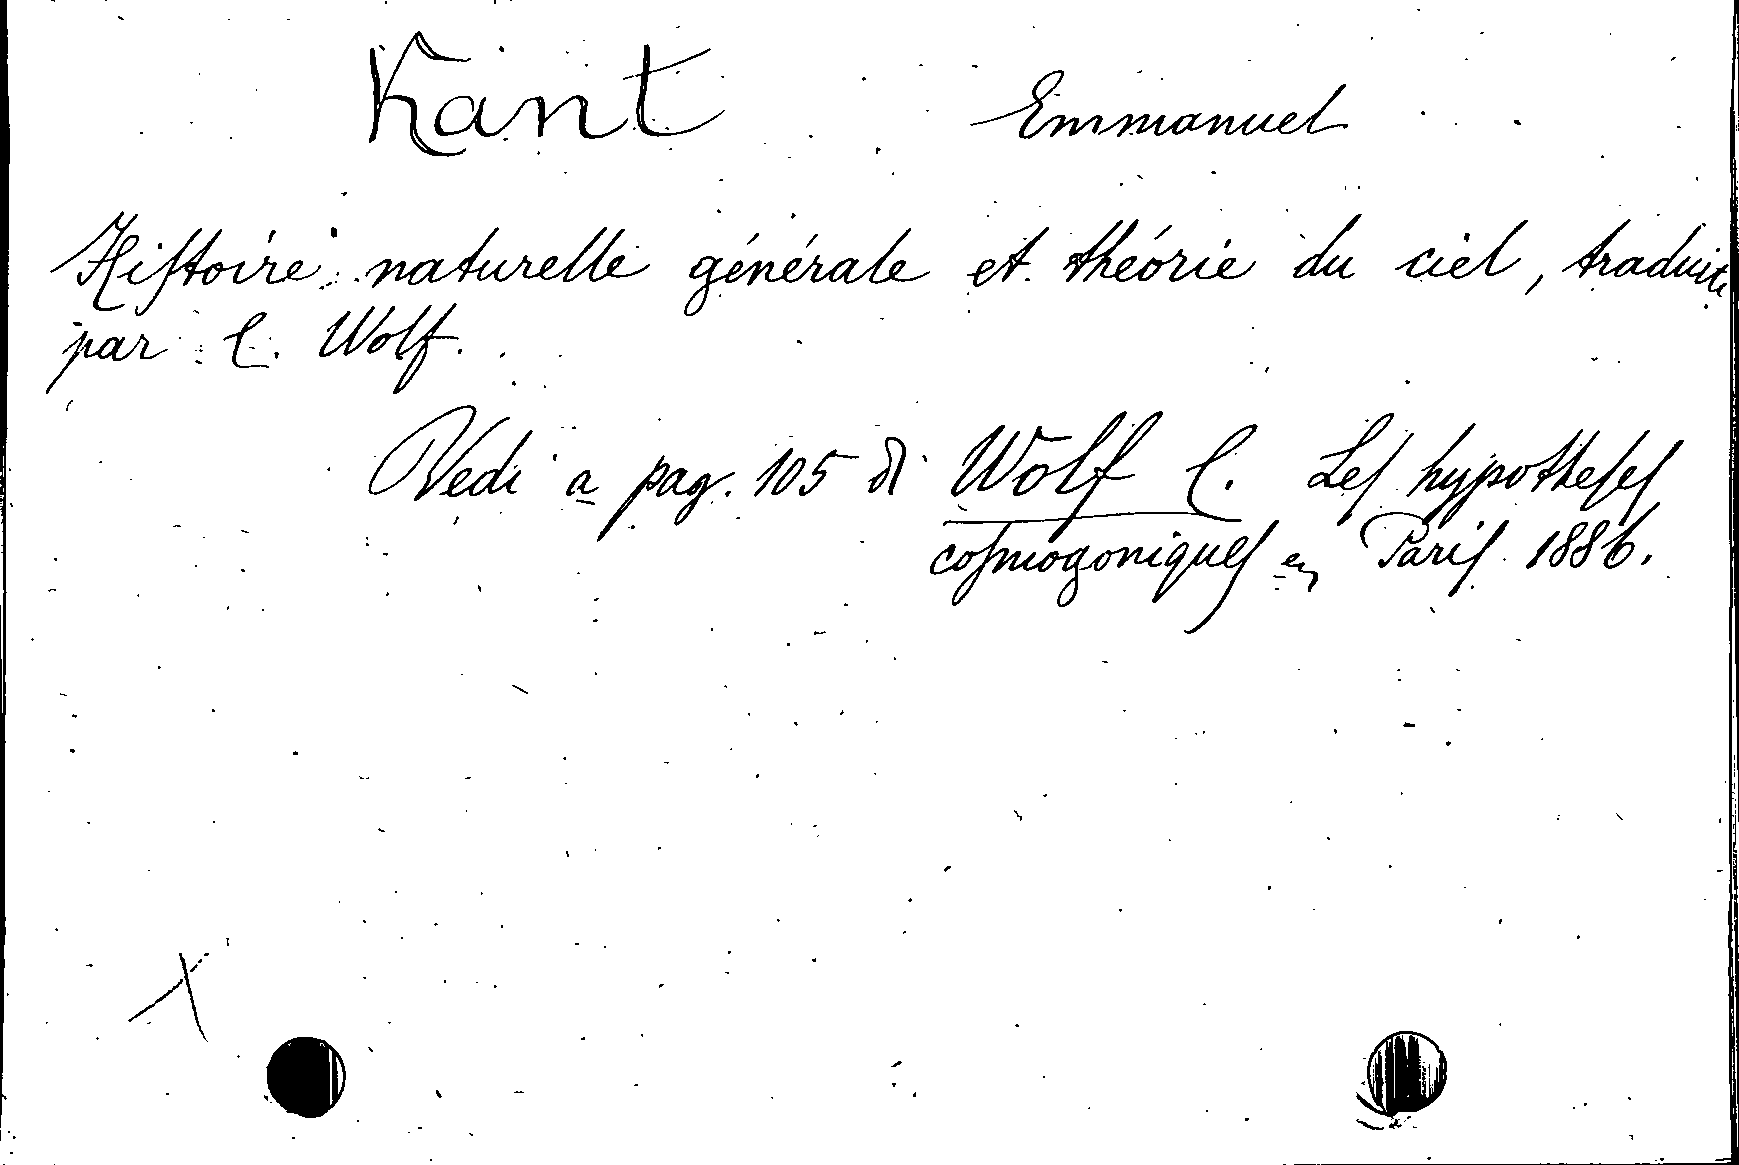 Kant Emmanuel
Hiſtoire naturelle générale et théorie du ciel, traduite
par C. Wolf.
Vedi a pag. 105 di Wolf C. Leſ hypotheſeſ
coſmogoniqueſ Pariſ 1886.